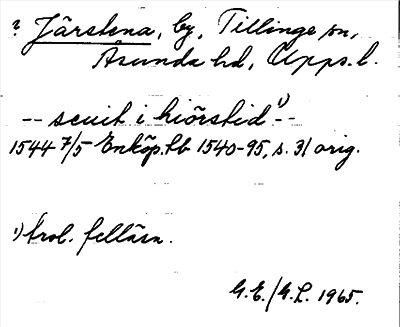 ? Järstena, by, Tillinge sn,
Åsunda hd, Upps. l.
-- scuit i hiörstid 1) --
1544 7/5 Enköp. tb 1540-95, s. 31 orig.
1) trol. felläsn.
G.E./G.L. 1965.